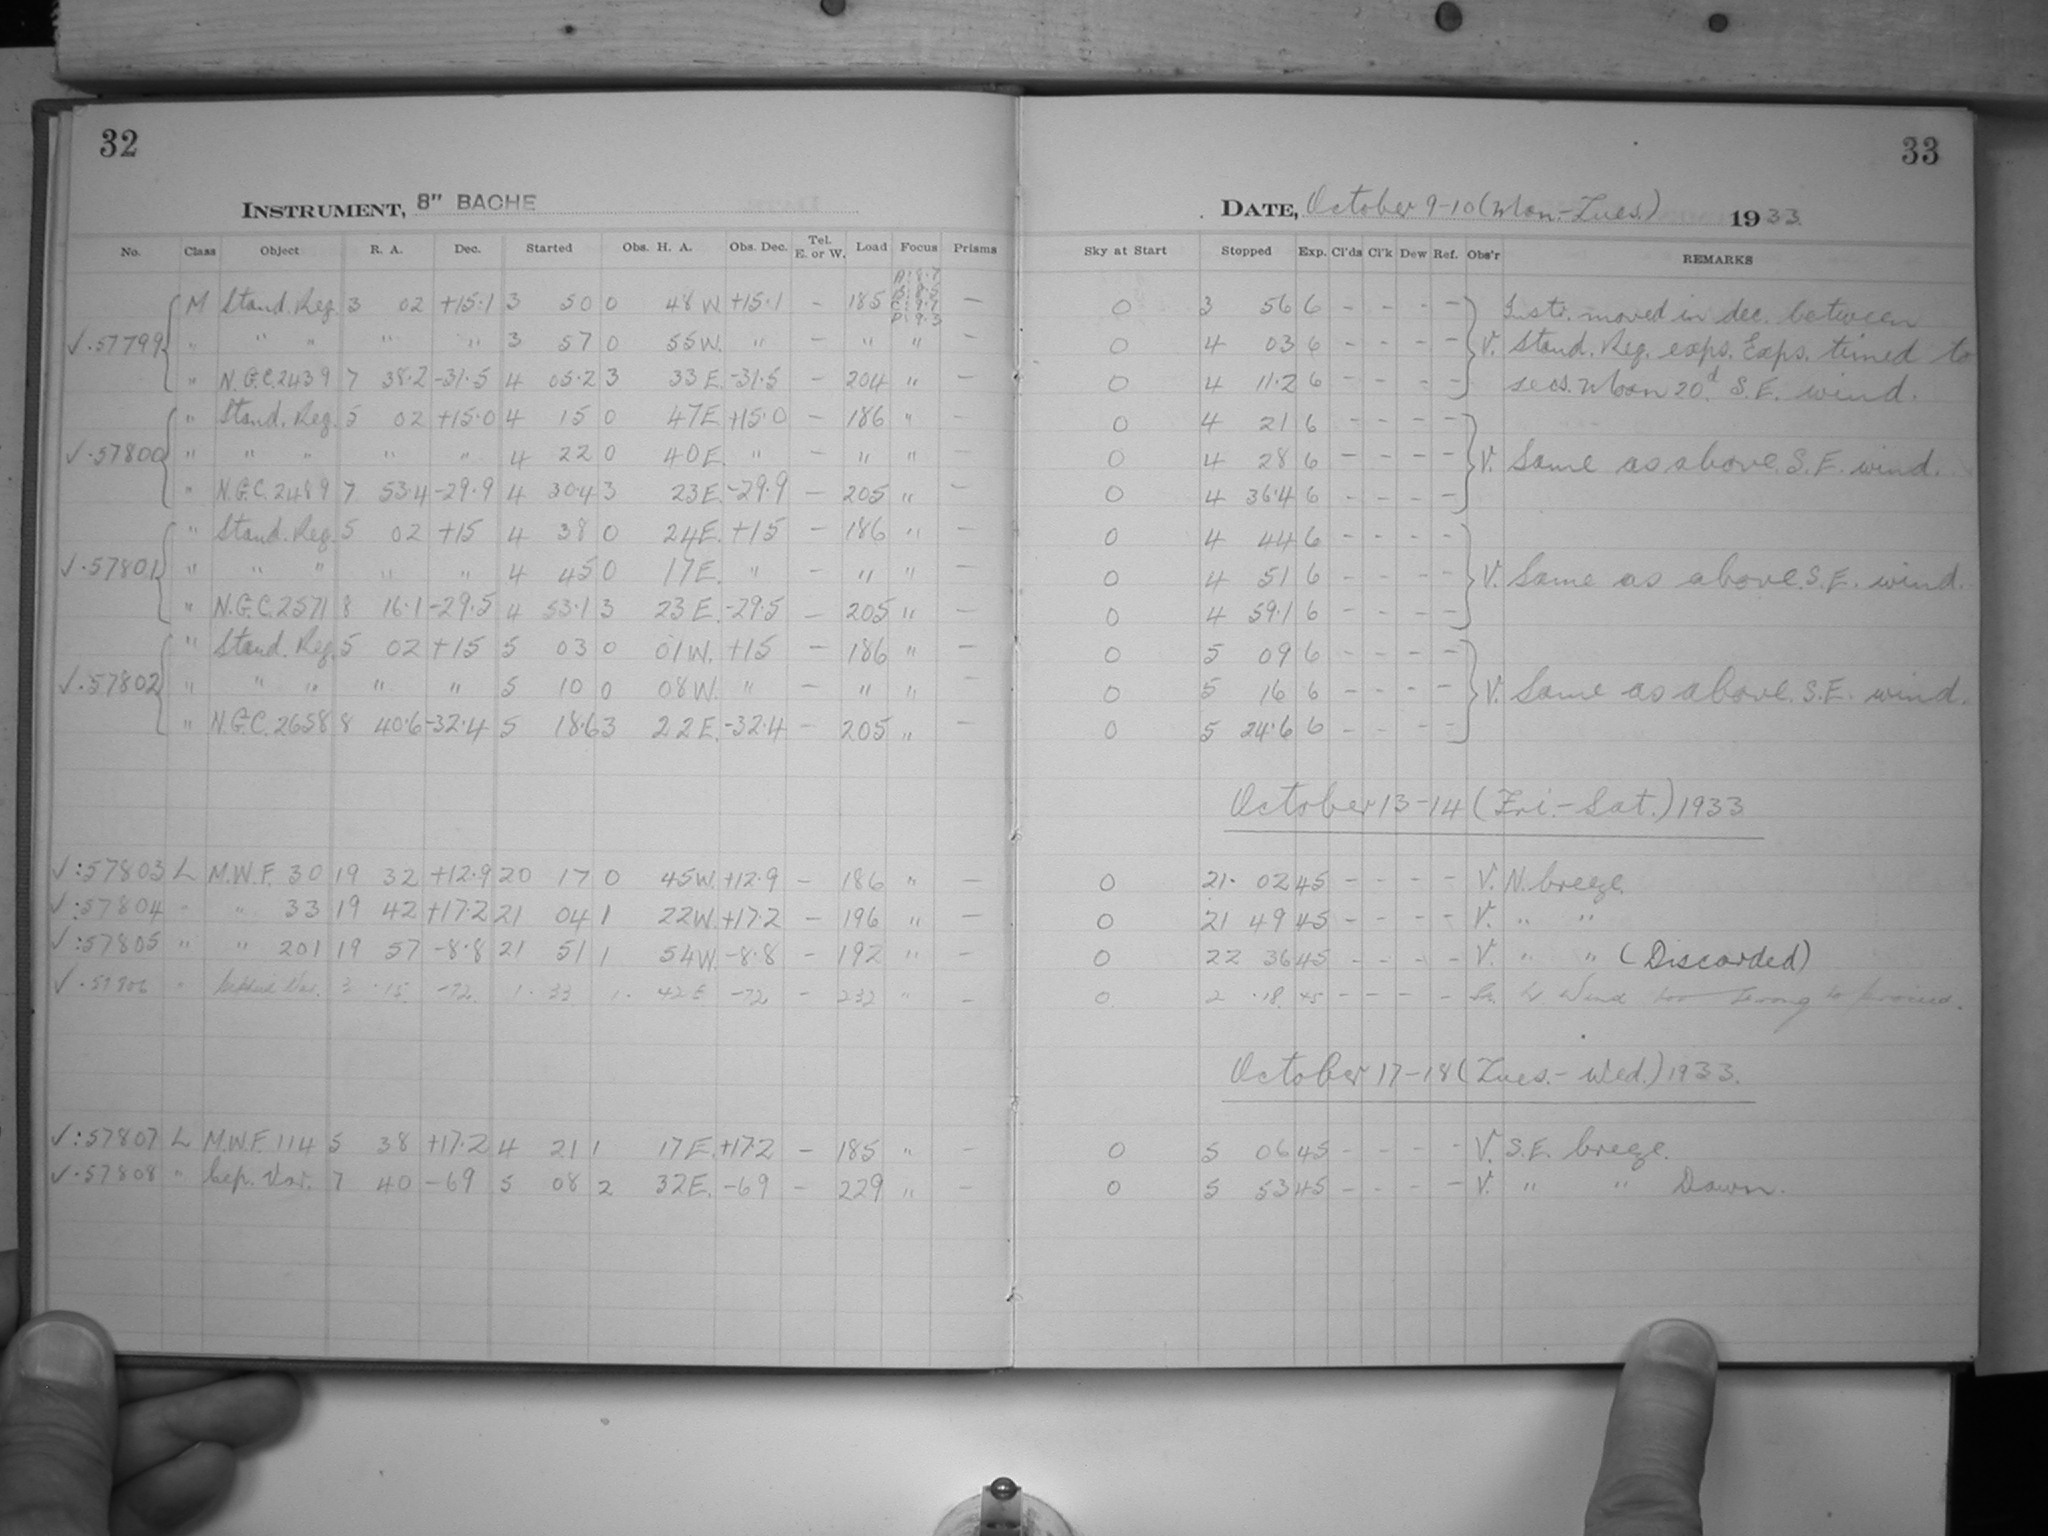 32
INSTRUMENT, 8" BACHE
No. Class Object R. A. Dec. Started Obs. H. A. Obs. Dec. Tel. E. or W. Load Focus Prisms
A: 8.7
B: 8.5
C: 9.1
D: 9.3
M Stand. Reg. 3 02 +15.1 3 50 0 48 W +15.1 - 185 -
√.57799 " " " " " 3 57 0 55 W. " - " " -
" N.G.C. 2439 7 38.2 -31.5 4 05.2 3 33 E. -31.5 - 204 " -
" Stand. Reg. 5 02 +15.0 4 15 0 47 E +15.0 - 186 " -
√.57800 " " " " " 4 22 0 40 E. " - " " -
" N.G.C. 2489 7 53.4 -29.9 4 30.4 3 23 E. -29.9 - 205 " -
" Stand. Reg. 5 02 +15 4 38 0 24 E. +15 - 186 " -
√.57801 " " " " " 4 45 0 17 E. " - " " -
" N.G.C. 2571 8 16.1 -29.5 4 53.1 3 23 E. -29.5 - 205 " -
" Stand. Reg. 5 02 +15 5 03 0 01 W. +15 - 186 " -
√.57802 " " " " " 5 10 0 08 W. " - " " -
" N.G.C. 2658 8 40.6 -32.4 5 18.6 3 22 E. -32.4 - 205 " -
√:57803 L M.W.F. 30 19 32 +12.9 20 17 0 45 W. +12.9 - 186 " -
√:57804 " " 33 19 42 +17.2 21 04 1 22 W +17.2 - 196 " -
√:57805 " " 201 19 57 -8.8 21 51 1 54 W. -8.8 - 192 " -
√.57806 " Var. 3 15 -72 1 33 1 42 E -72 - 232 " -
√:57807 L M.W.F. 114 5 38 +17.2 4 21 1 17 E. +17.2 - 185 " -
√.57808 " Cep. Var. 7 40 -69 5 08 2 32 E. -69 - 229 " -
33
DATE, October 9-10 (Mon.-Tues.) 1933.
Sky at Start Stopped Exp. Cl'ds Cl'k Dew Ref. Obs'r REMARKS
0 3 56 6 - - - - Instr. moved in dec. between
0 4 03 6 - - - - V. Stand. Reg. exps. Exps. timed to
0 4 11.2 6 - - - - secs. Moon 20d. S.E. wind.
0 4 21 6 - - - -
0 4 28 6 - - - - V. Same as above. S.E. wind.
0 4 36.4 6 - - - -
0 4 44 6 - - - -
0 4 51 6 - - - - V. Same as above. S.E. wind.
0 4 59.1 6 - - - -
0 5 09 6 - - - -
0 5 16 6 - - - - V. Same as above. S.E. wind.
0 5 24.6 6 - - - -
October 13-14 (Fri.-Sat.) 1933
0 21. 02 45 - - - - V. N. breeze.
0 21 49 45 - - - - V. " "
0 22 36 45 - - - - V. " " (Discarded)
0 2 .18 45 - - - - Wind too strong to
October 17-18 (Tues.-Wed.) 1933.
0 5 06 45 - - - - V. S.E. breeze.
0 5 53 45 - - - - V. " " Dawn.